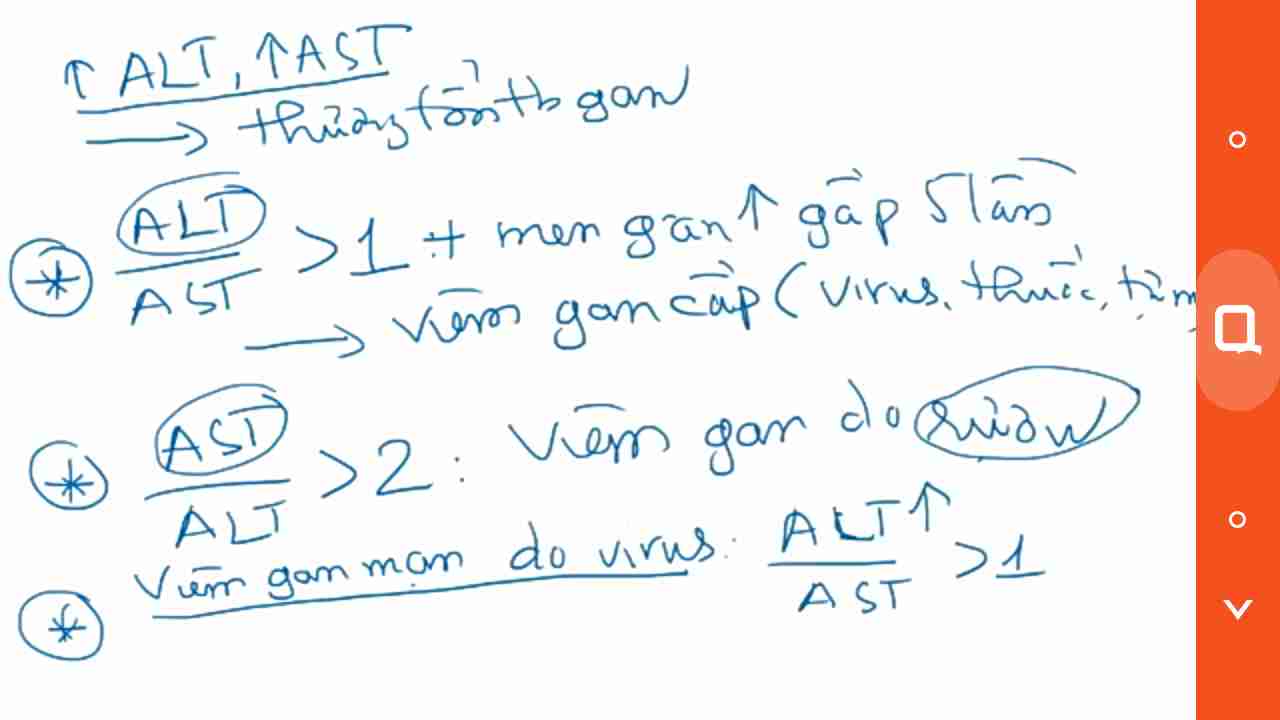 ↑ ALT, ↑AST
→ thương tổn tb gan
* ALT / AST > 1 + men gan ↑ gấp 5 lần
→ viêm gan cấp ( virus, thuốc,
* AST / ALT > 2 : Viêm gan do rượu
* Viêm gan mạn do virus: ALT↑ / AST > 1